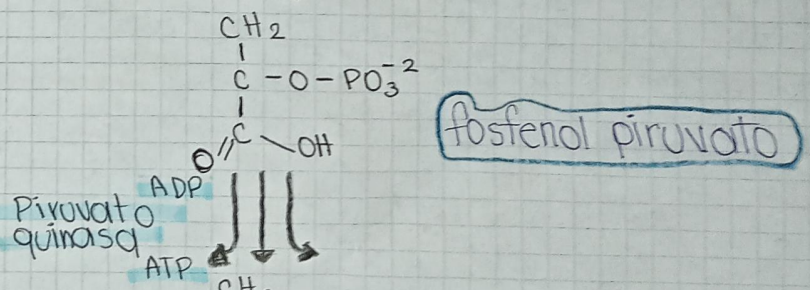 CH2
C-O-PO3-2
fosfenol piruvato
C
O OH
ADP
Piruvato
quinasa
ATP
CH